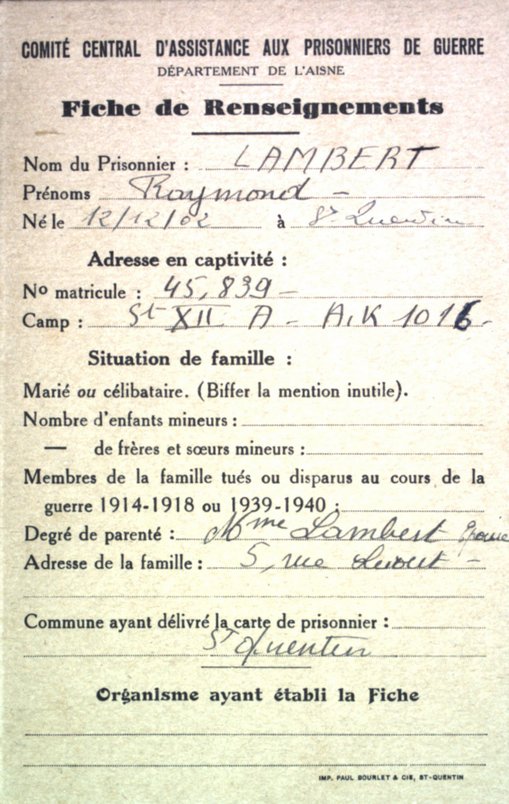 COMITÉ CENTRAL D'ASSISTANCE AUX PRISONNIERS DE GUERRE
DÉPARTEMENT DE L'AISNE
Fiche de Renseignements
Nom du Prisonnier : LAMBERT
Prénoms Raymond -
Né le 12/12/02 à St Quentin
Adresse en captivité :
No matricule : 45,839 -
Camp : St XII A - A.K 1016 -
Situation de famille :
Marié ou célibataire. (Biffer la mention inutile).
Nombre d'enfants mineurs :
— de frères et sœurs mineurs :
Membres de la famille tués ou disparus au cours de la
guerre 1914-1918 ou 1939-1940 :
Degré de parenté : Mme Lambert épouse
Adresse de la famille : 5, rue -
Commune ayant délivré la carte de prisonnier :
St Quentin
Organisme ayant établi la Fiche
IMP. PAUL BOURLET & CIE, ST-QUENTIN